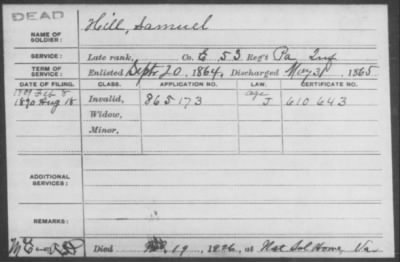 DEAD
NAME OF SOLDIER: Hill, Samuel
SERVICE: Late rank, Co. E 53 Reg't Pa Inf
TERM OF SERVICE: Enlisted Sept 20, 1864, Discharged May 31, 1865
DATE OF FILING. CLASS. APPLICATION NO. LAW. CERTIFICATE NO.
1909 Feb 8 age
1890 Aug 18 Invalid, 865173 J 610643
Widow,
Minor,
ADDITIONAL SERVICES:
REMARKS:
Died 19, at Nat Sol Home, Va